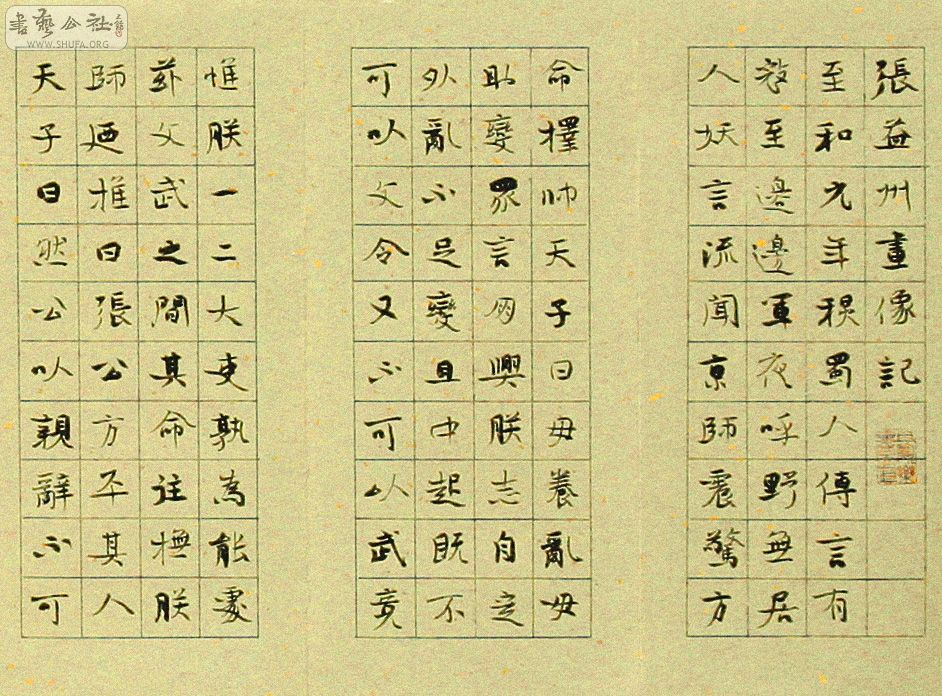 書藝公社
WWW.SHUFA.ORG
張益州畫像記
至和元年秋蜀人傳言有
寇至邊邊軍夜呼野無居
人妖言流聞京師震驚方
命擇帥天子曰毋養亂毋
助變眾言朋興朕志自定
外亂不足變且中起既不
可以文令又不可以武竟
惟朕一二大吏孰為能處
茲文武之間其命往撫朕
師廼推曰張公方平其人
天子曰然公以親辭不可